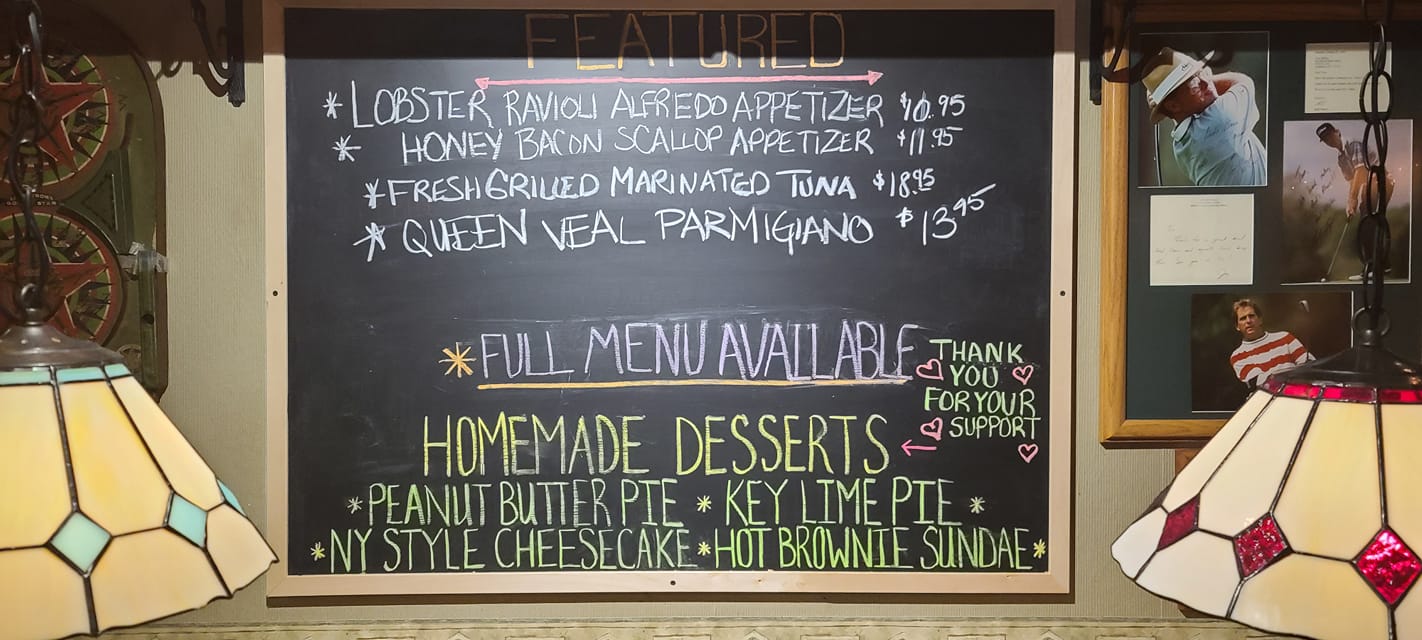 FEATURED
* LOBSTER RAVIOLI ALFREDO APPETIZER $10.95
* HONEY BACON SCALLOP APPETIZER $11.95
* FRESH GRILLED MARINATED TUNA $18.95
* QUEEN VEAL PARMIGIANO $13.95
* FULL MENU AVAILABLE
THANK
YOU
FOR YOUR
SUPPORT
HOMEMADE DESSERTS
* PEANUT BUTTER PIE * KEY LIME PIE *
* NY STYLE CHEESECAKE * HOT BROWNIE SUNDAE *